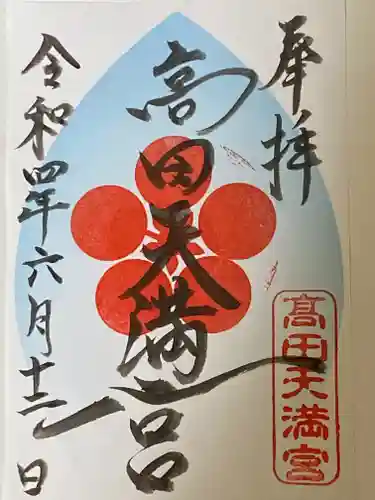 奉拝
高田天満宮
髙田天満宮
令和四年六月十二日